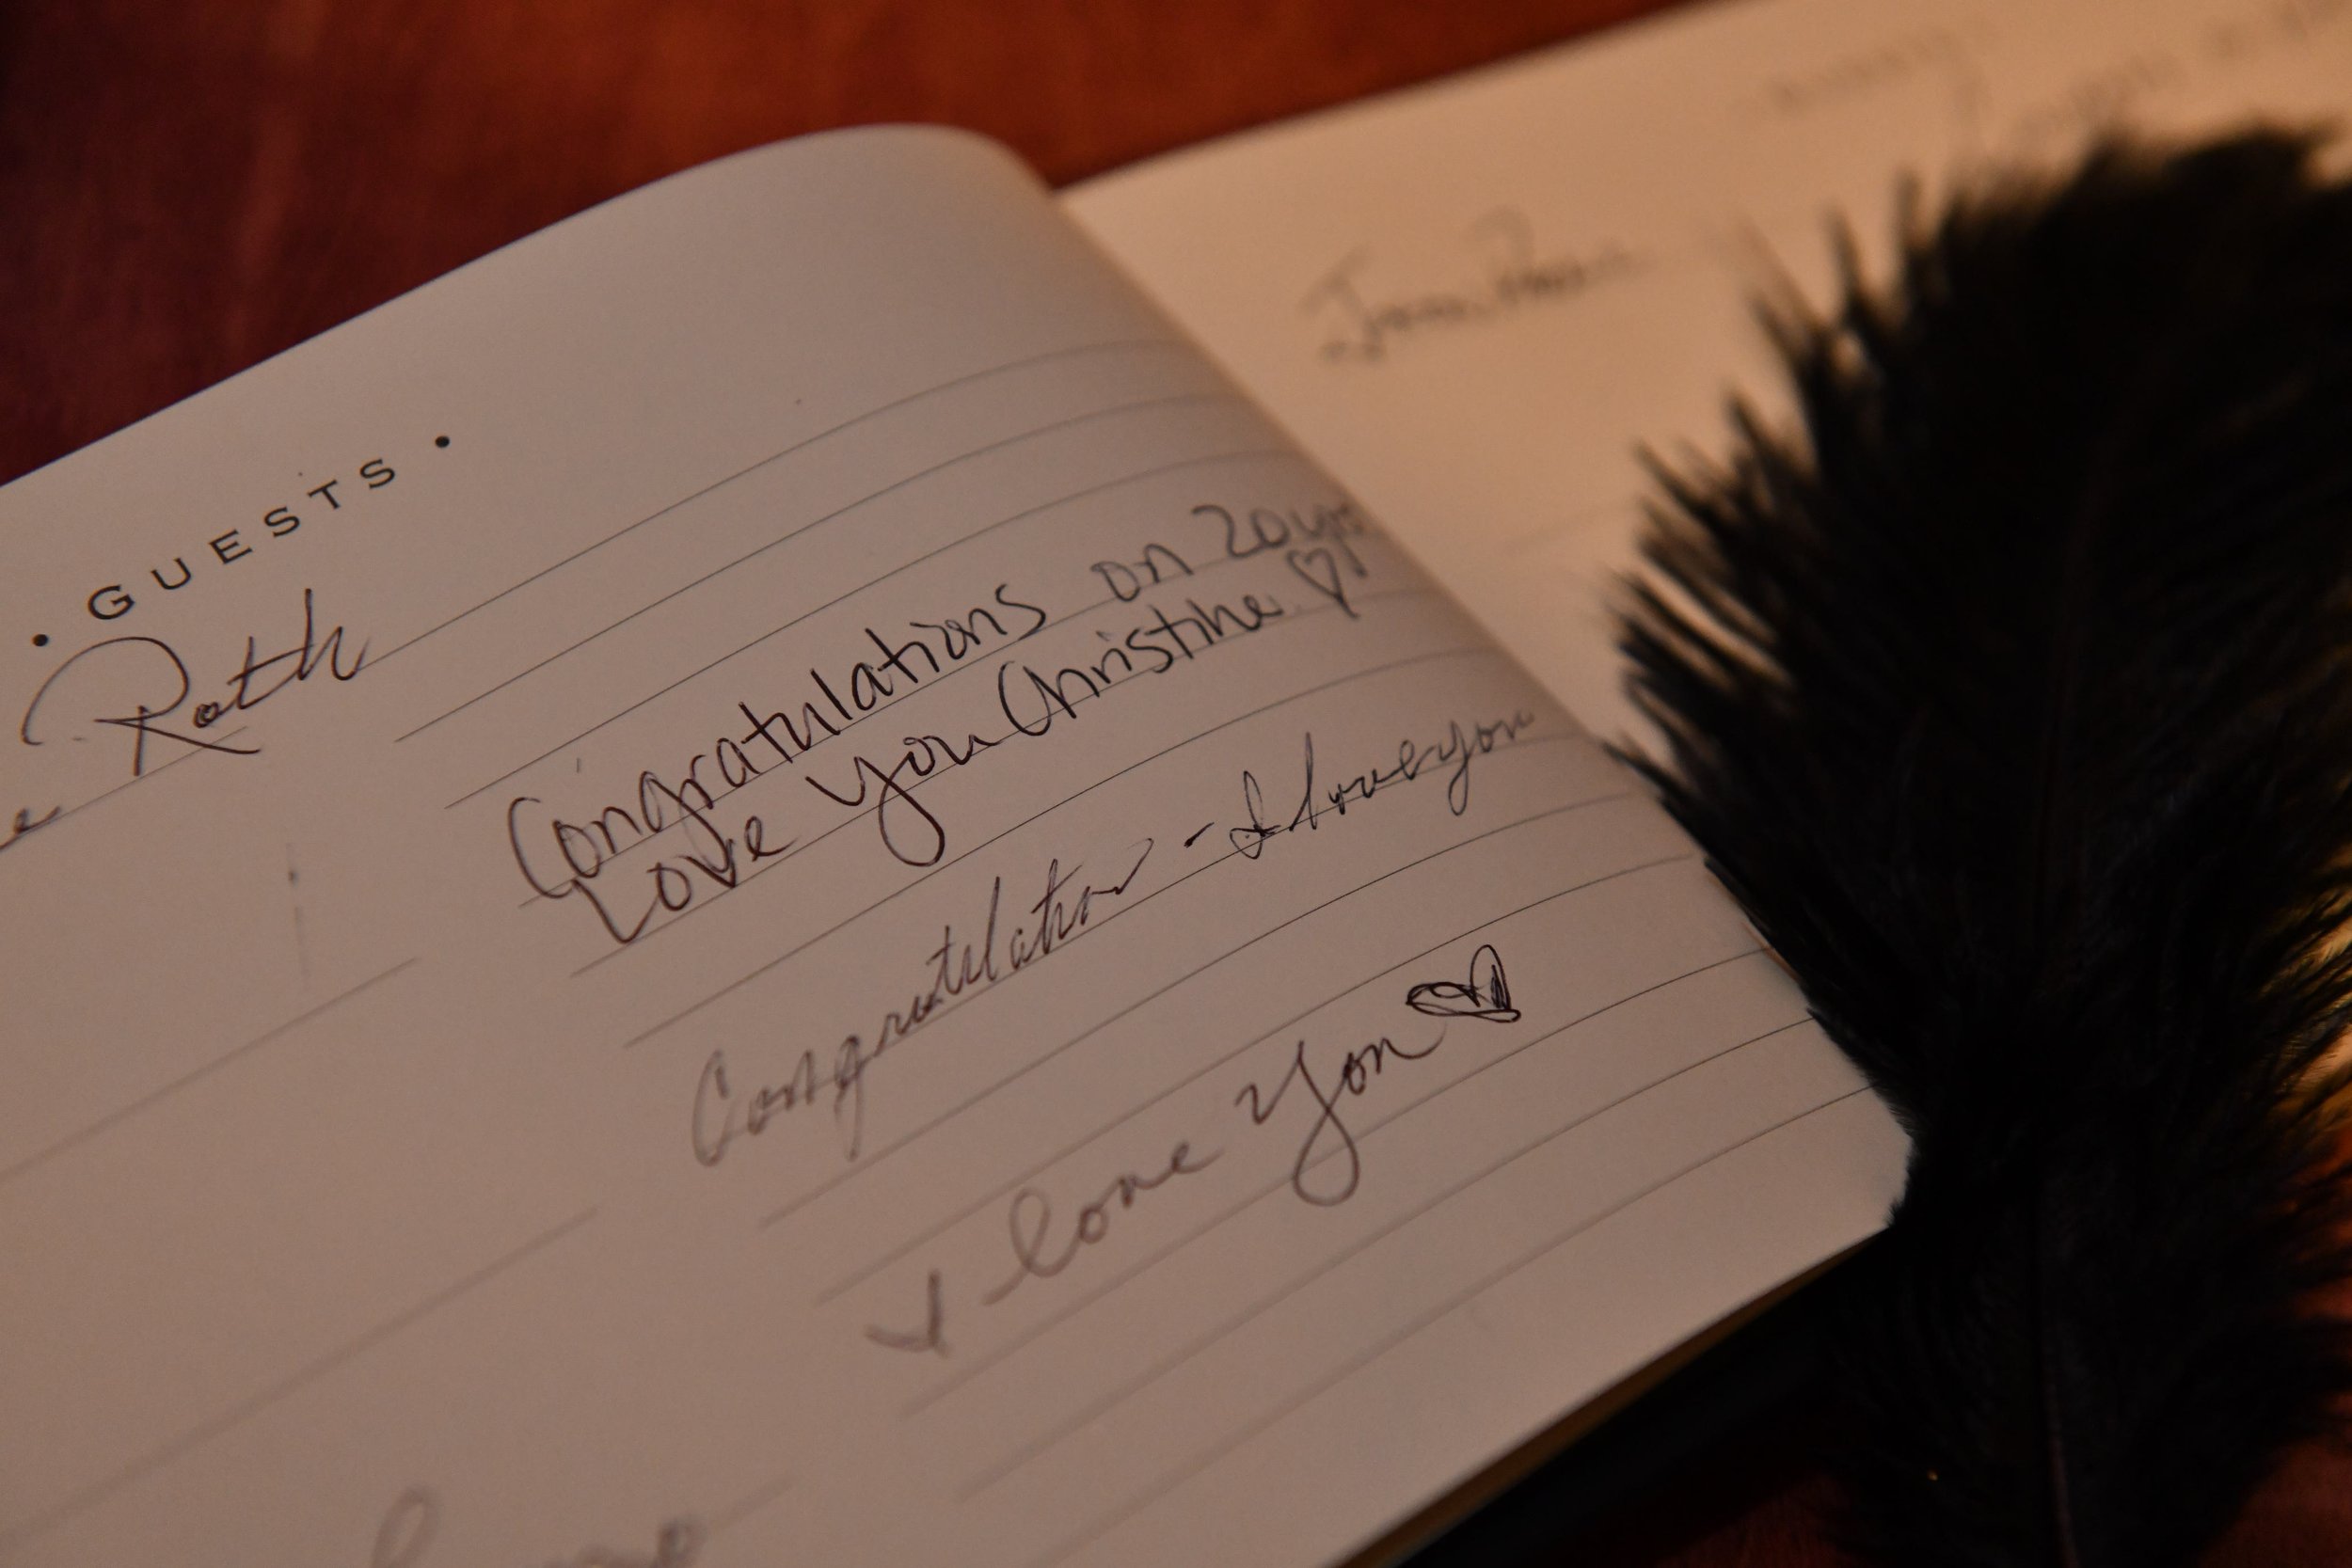 • GUESTS •
Roth
Congratulations on 20yrs
Love you Christine ♡
Congratulation - I love you
I love you ♡